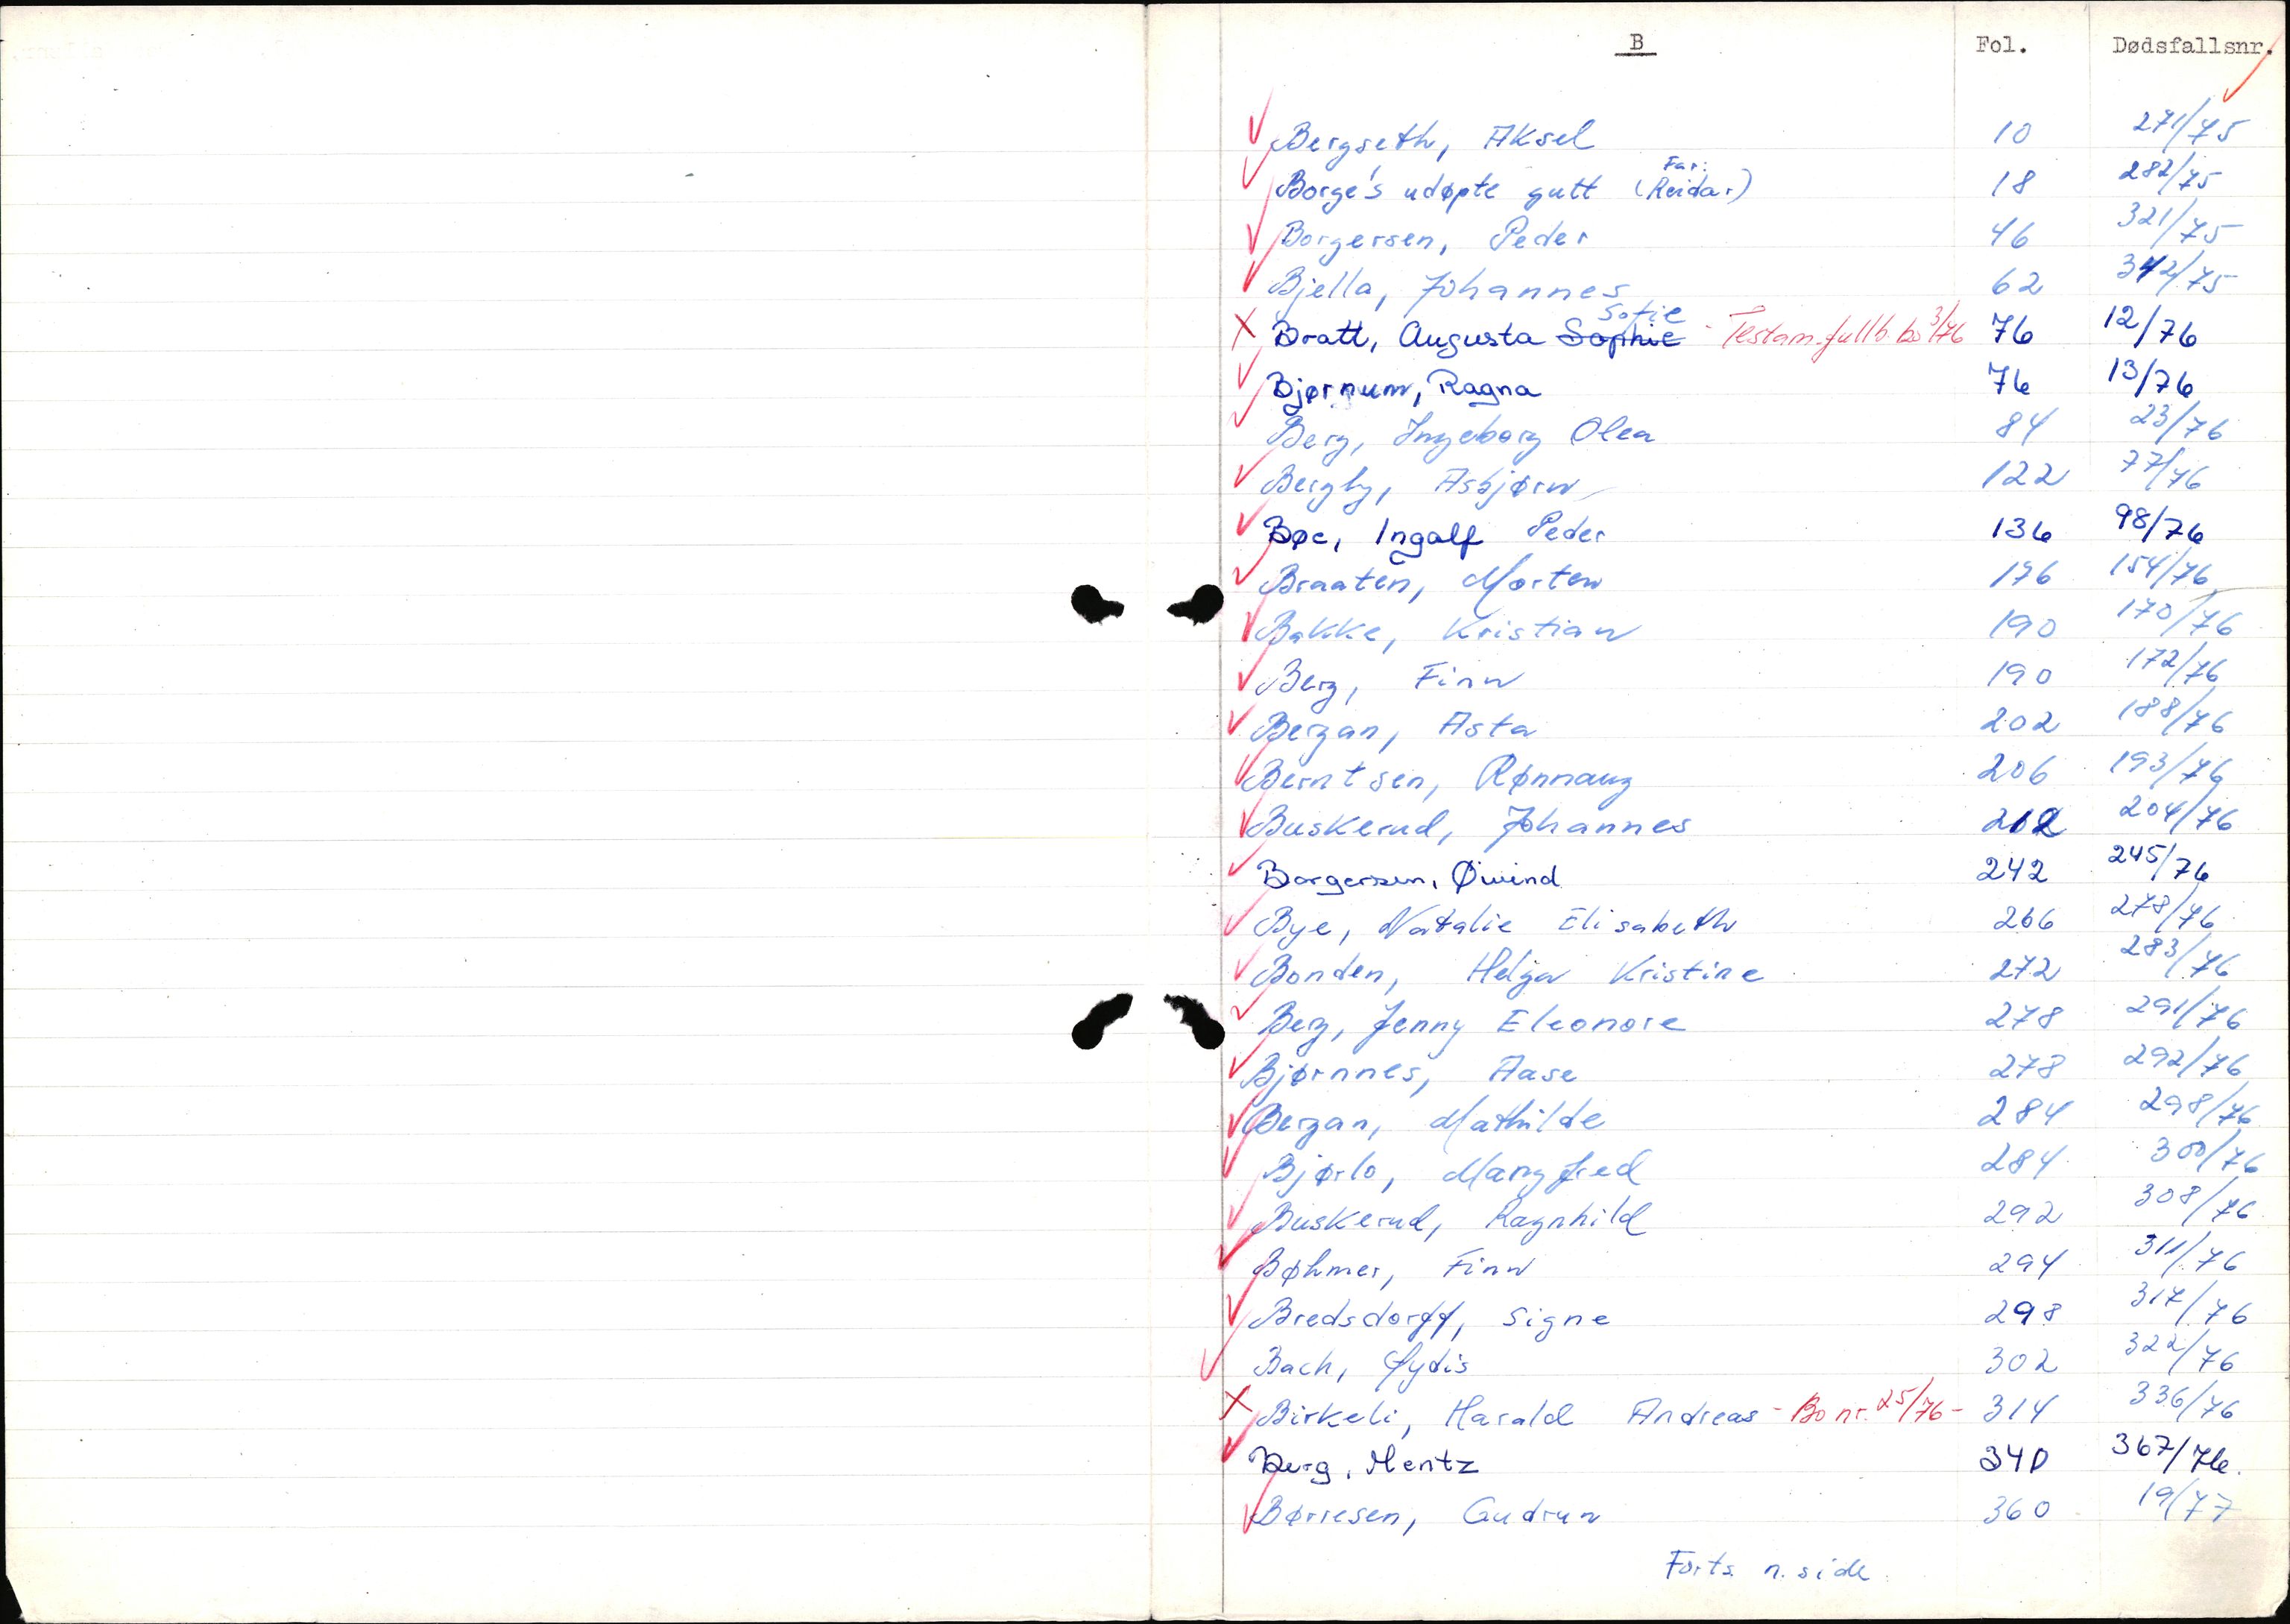 B Fol. Dødsfallsnr.
Bergseth, Aksel 10 271/75
Borge's udøpte gutt (Far: Reidar) 18 282/75
Borgersen, Peder 46 321/75
Bjella, Johannes 62 342/75
Bratt, Augusta Sophie Sofie - Testam. fullb. bo 3/76 76 12/76
Bjørnum, Ragna 76 13/76
Berg, Ingeborg Olea 84 23/76
Bergby, Asbjørn 122 77/76
Bøe, Ingolf Peder 136 98/76
Braaten, Morten 176 154/76
Bakke, Kristian 190 170/76
Berg, Finn 190 172/76
Bergan, Asta 202 188/76
Berntsen, Rønnaug 206 193/76
Buskerud, Johannes 212 204/76
Borgersen, Øivind 242 245/76
Bye, Natalie Elisabeth 266 278/76
Bonden, Helga Kristine 272 283/76
Berg, Jenny Eleonore 278 291/76
Bjørnnes, Aase 278 292/76
Bergan, Mathilde 284 298/76
Bjørlo, Mangfred 284 300/76
Buskerud, Ragnhild 292 308/76
Bøhmer, Finn 294 311/76
Bredsdorff, Signe 298 317/76
Bach, 302 322/76
Birkeli, Harald Andreas - Bo nr. 25/76 - 314 336/76
Berg, Mentz 340 367/76.
Børresen, Gudrun 360 19/77
Forts. n. side